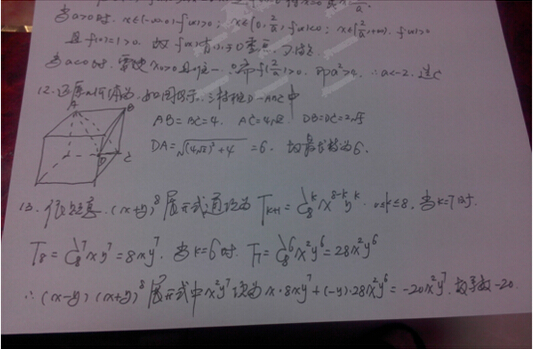 当a>0时, x∈(-∞,0), f'(x)>0; x∈(0, 2/a), f'(x)<0; x∈(2/a, +∞), f'(x)>0
且f(0)=1>0, 故f(x)有小于0零点, 不符
当a<0时, 要使x₀>0且唯一, 只需f(2/a)>0, 即a²>4, ∴a<-2, 选C
12. 还原几何体为, 如图所示, 三棱锥D-ABC中
AB=BC=4, AC=4√2, DB=DC=2√5
DA=√((4√2)²+4)=6, 故最长棱为6.
A
B
D
C
13. 依题意, (x+y)⁸展开式通项为 Tₖ₊₁=C₈ᵏx⁸⁻ᵏyᵏ, 0≤k≤8, 当k=7时
T₈=C₈⁷xy⁷=8xy⁷, 当k=6时, T₇=C₈⁶x²y⁶=28x²y⁶
∴(x-y)(x+y)⁸展开式中x²y⁷项为 x·8xy⁷+(-y)·28x²y⁶=-20x²y⁷, 故系数-20